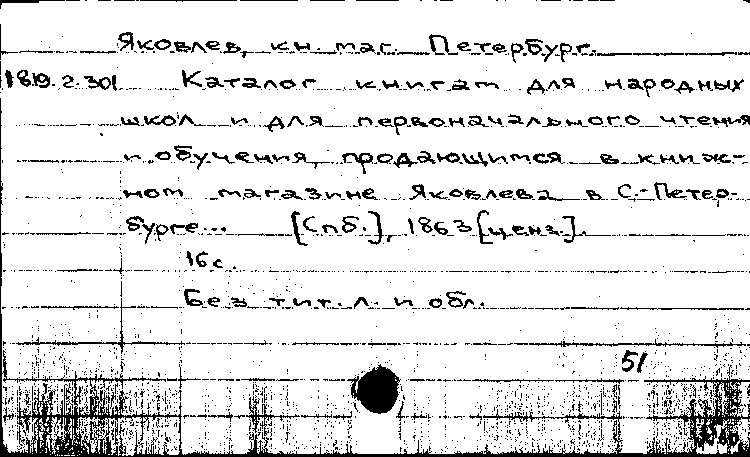 Яковлев, кн. маг. Петербург.
18.19.2.301 Каталог книгам для народных
школ и для первоначального чтения
и обучения, продающимся в книж-
ном магазине Яковлева в С.-Петер-
бурге... [Спб.], 1863 [ценз.].
16 с.
Без тит. л. и обл.
51